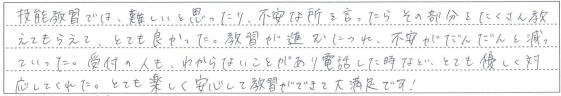 技能教習では、難しいと思ったり、不安な所を言ったら その部分をたくさん教
えてもらえて、とても良かった。教習が進むにつれ、不安がだんだんと減っ
ていった。受付の人も、わからないことがあり電話した時など、とても優しく対
応してくれた。とても楽しく安心して教習ができて大満足です!